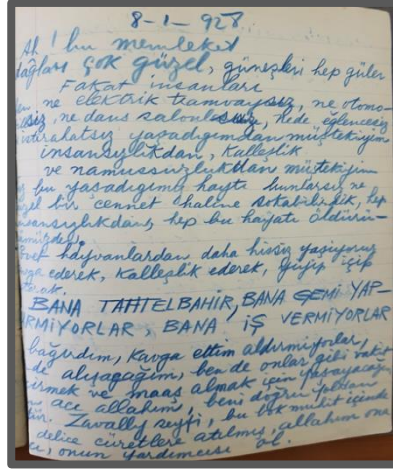 8-1-928
Ah! bu memleket
dağları çok güzel, güneşleri hep güler
Fakat insanları
ne elektrik tramvaysız, ne otomo-
ne dans salonlu, nede eğlencesiz
istirahatsız yaşadığımdan müştekiyim
insansızlıkdan, kalleşlik
ve namussuzlukdan müştekiyim
bu yaşadığımız hayatı bunlarsız ne
bir cennet haline sokabilirdik, hep
insansızlıkdan, hep bu hayatı öldürün-
hayvanlardan daha hissiz yaşıyoruz
ederek, kalleşlik ederek, yiyip içip
BANA TAHTELBAHİR, BANA GEMİ YAP-
IRMIYORLAR, BANA İŞ VERMİYORLAR
bağırdım, kavga ettim aldırmıyorlar,
de alışacağım, ben de onlar gibi vakit
ve maaş almak için yaşayacağım
acı allahım, beni doğru yoldan
Zavallı seyfi, bu bok muhit içinde
delice cüretlere atılmış, allahım ona
onun yardımcısı ol.